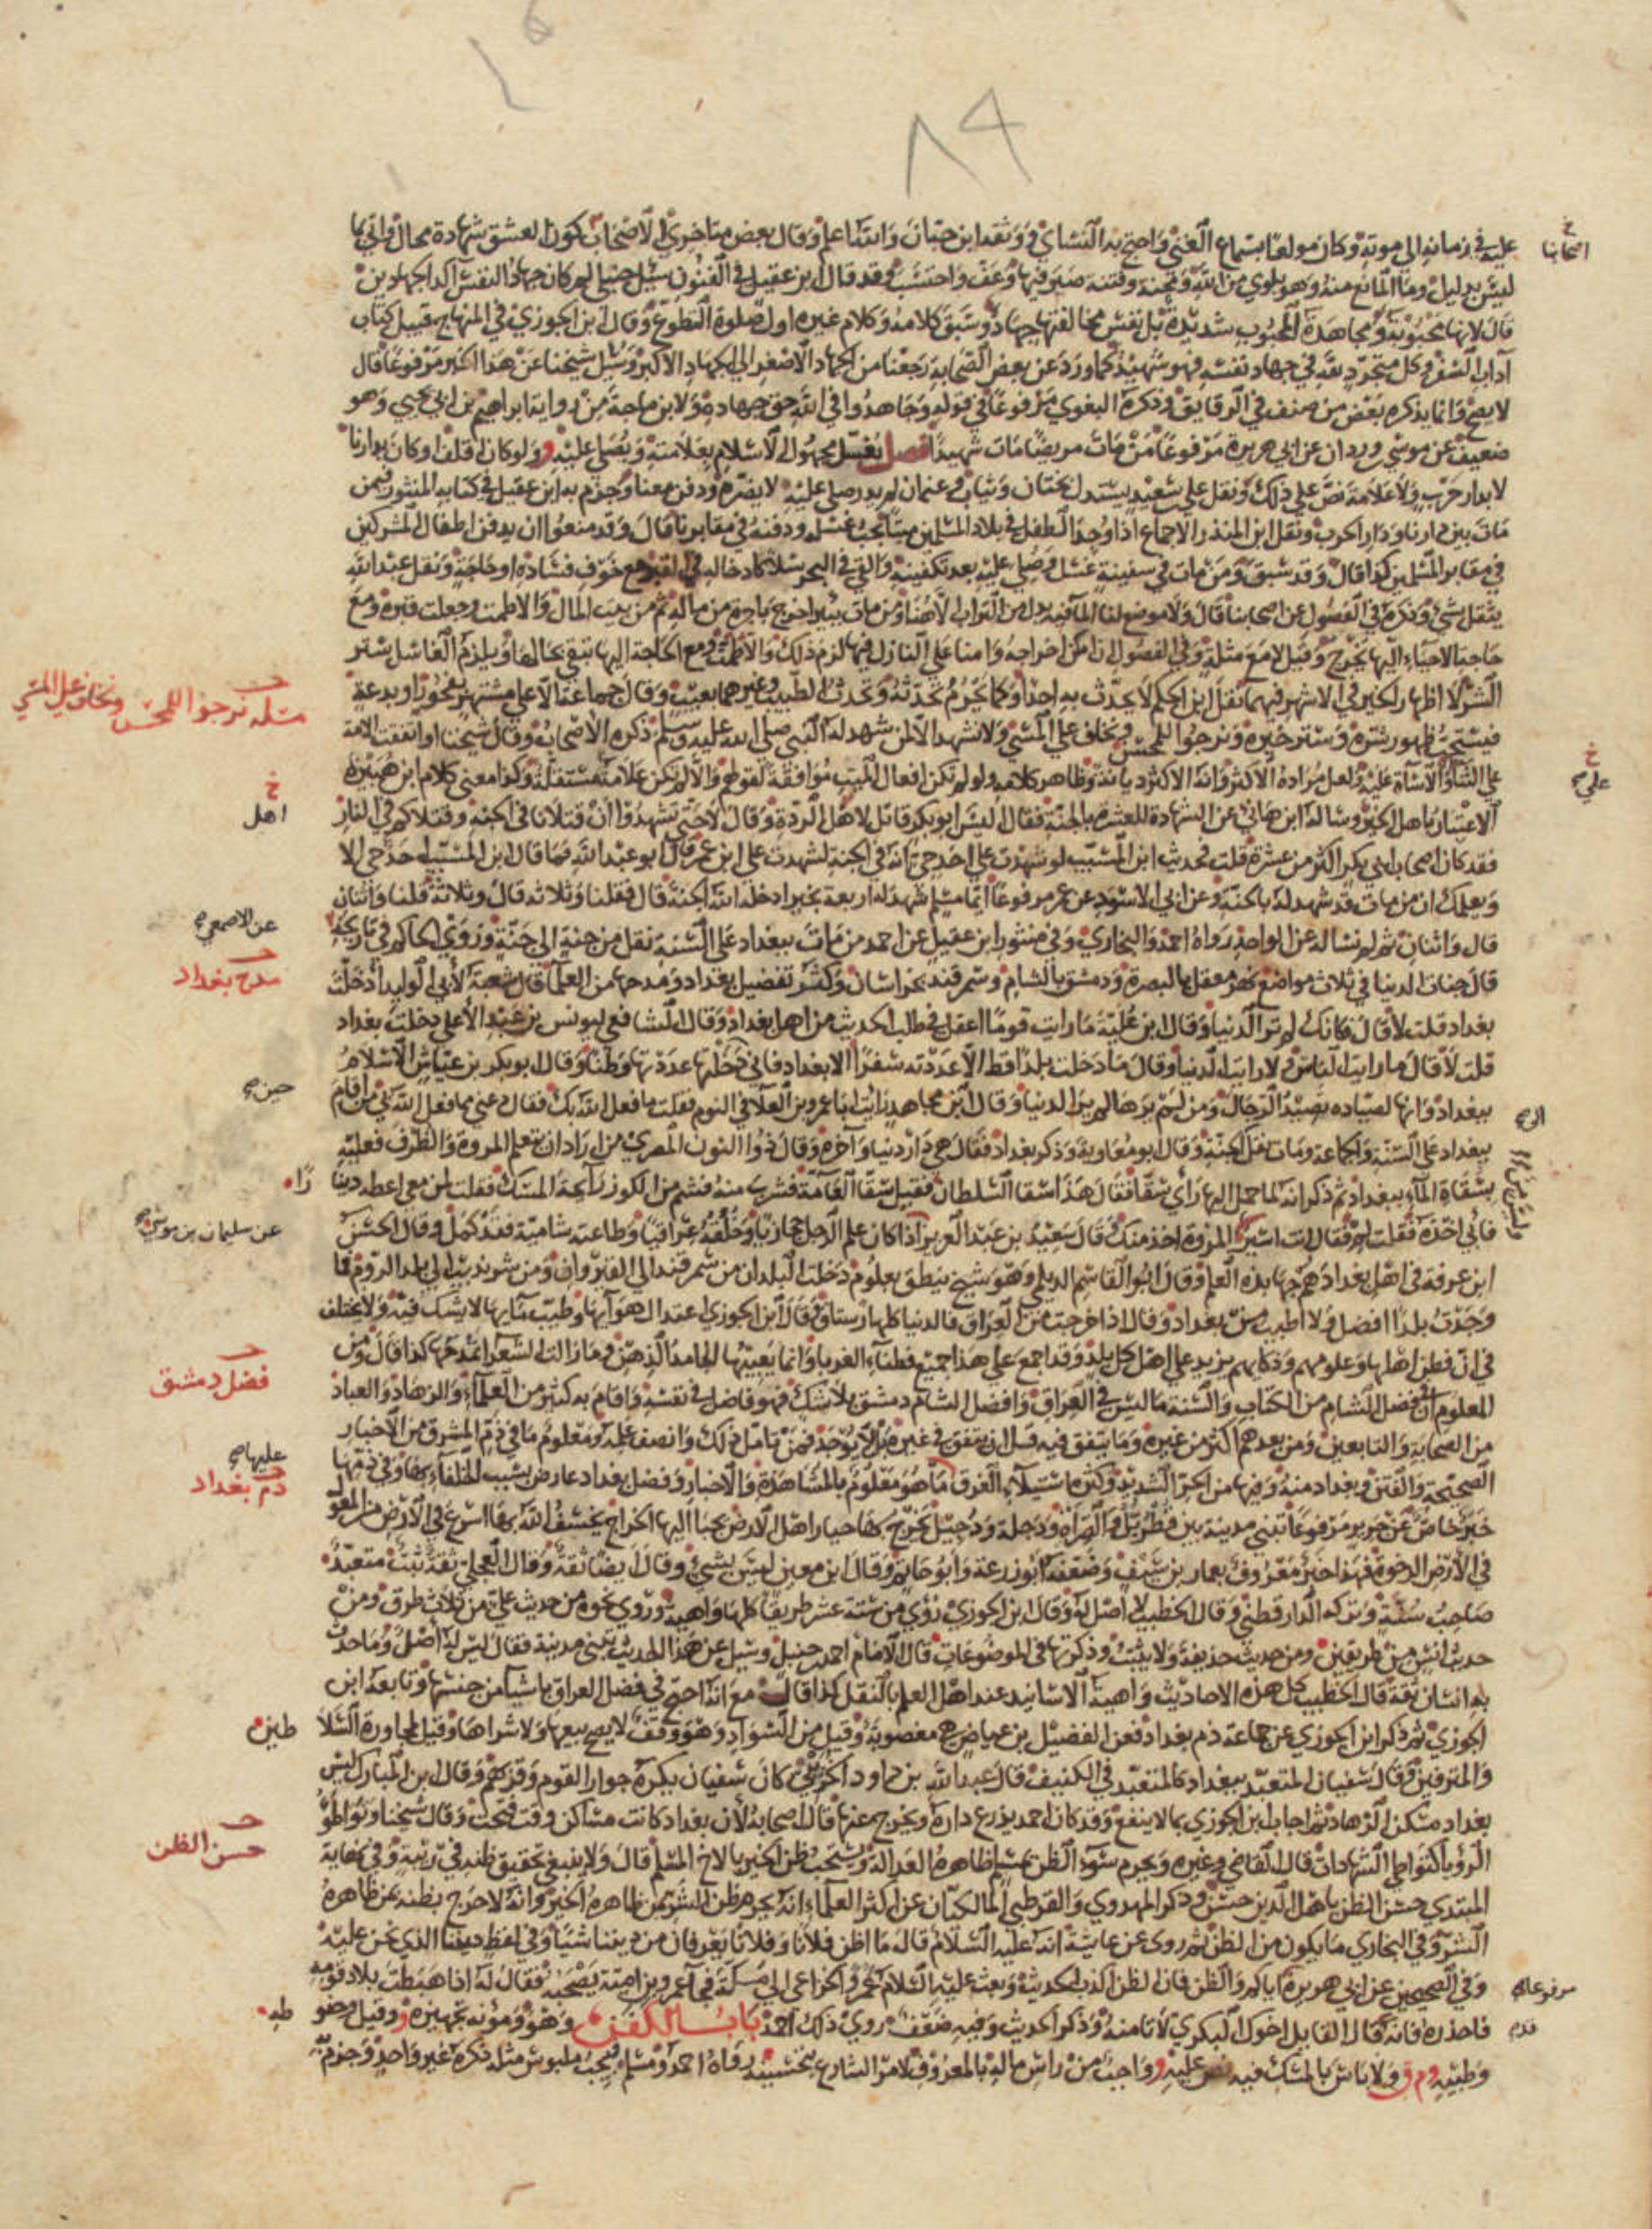 عليه في زمانه الى موته وكان مولعا بسماع الغنى واحتج به النسائي ووثقه ابن حبان والله اعلم وقال بعض متأخري الاصحاب كون العشق شهادة محال واتى بما
ليس بدليل وما المانع منه وهو بلوى من الله ومحنة وفتنة صبر فيها وعف واحتسب وقد قال ابن عقيل في الفنون سئل حنبلي لم كان جهاد النفس آكد الجهادين
قال لانها محبوبة ومجاهدة المحبوب شديدة بل نفس مخالفتها جهاد وسبق كلامه وكلام غيره اول صلوة التطوع وقال ابن الجوزي في المنهاج قبيل كتاب
آداب السفر وكل متجرد لله في جهاد نفسه فهو شهيد كما ورد عن بعض الصحابة رجعنا من الجهاد الاصغر الى الجهاد الاكبر وسئل شيخنا عن هذا الخبر مرفوعا قال
لا يصح وانما يذكره بعض من صنف في الرقايق وذكره البغوي مرفوعا في قوله وجاهدوا في الله حق جهاده ولابن ماجة من رواية ابراهيم بن ابي يحيى وهو
ضعيف عن موسى بن وردان عن ابي هريرة مرفوعا من مات مريضا مات شهيدا فصل يغسل مجهول الاسلام بعلامته ويصلى عليه و ولو كان اقلف او كان بدارنا
لا بدار حرب ولا علامة نص على ذلك ونقل علي بن سعيد يستدل بختان وثياب وعثمان لم يدر صلى عليه لا يضره ودفن معنا وجزم به ابن عقيل في كتابه المنثور فيمن
مات بين دارنا ودار الحرب ونقل ابن المنذر الاجماع اذا وجد الطفل في بلاد المسلمين ميتا يجب غسله ودفنه في مقابرنا قال وقد منعوا ان يدفن اطفال المشركين
في مقابر المسلمين كذا قال وقد سبق ومن مات في سفينة غسل وصلي عليه بعد تكفينه والقي في البحر سلا كادخاله في القبر مع خوف فساده او حاجة ونقل عبد الله
يثقل بشيء وذكره في الفصول عن اصحابنا قال ولا موضع لنا الماء فيه بدل من التراب الا هنا ومن مات ببئر اخرج باجرة من ماله ثم من بيت المال والا طمت وجعلت قبره ومع
حاجة الاحياء اليها يخرج وقيل لا مع مثلة وفي الفصول ان امكن اخراجه وامنا على النازل فيها لزم ذلك والا طمت ومع الحاجة اليها تبقى بحالها ويلزم الغاسل ستر
الشر لا اظهار الخير في الاشهر فيهما نقل ابن الحكم لا يحدث به احدا وكما يحرم تحدثه وتحدث الطبيب وغيرهما بعيب وقال جماعة الا على مشتهر بفجور او بدعة
فيستحب ظهور شره وستر خيره ونرجوا للمحسن ونخاف على المسيء ولا نشهد الا لمن شهد له النبي صلى الله عليه وسلم ذكره الاصحاب وقال شيخنا او اتفقت الامة
على الثناء او الاساءة عليه ولعل مراده الاكثر وانه الاكثر ديانة وظاهر كلامه ولو لم تكن افعال الميت موافقة لقولهم والا لم تكن علامة مستقلة وكذا معنى كلام ابن هبيرة
الاعتبار باهل الخير وساله ابن هانئ عن الشهادة للعشرة بالجنة فقال اليس ابو بكر قاتل لاهل الردة وقال لا حتى تشهدوا ان قتلانا في الجنة وقتلاكم في النار
فقد كان اصحاب ابي بكر اكثر من عشرة قلت فحديث ابن المسيب لو شهدت على احد حي انه في الجنة لشهدت على ابن عمر قال ابو عبد الله فما قال ابن المسيب احد حي الا
ويعلمك ان من مات قد شهد له بالجنة وعن ابي الاسود عن عمر مرفوعا ايما مسلم شهد له اربعة بخير ادخله الله الجنة قال فقلنا وثلاثة قال وثلاثة قلنا واثنان
قال واثنان ثم لم نساله عن الواحد رواه احمد والبخاري وفي منثور ابن عقيل عن احمد من مات ببغداد على السنة نقل من جنة الى جنة وروى الحاكم في تاريخه
قال جنات الدنيا في ثلاث مواضع نهر معقل بالبصرة ودمشق بالشام وسمرقند بخراسان وكثر تفضيل بغداد ومدحها من العلماء قال شعبة لابي الوليد ادخلت
بغداد قلت لا قال فكانك لم تر الدنيا وقال ابن علية ما رايت قوما اعقل في طلب الحديث من اهل بغداد وقال الشافعي ليونس بن عبد الاعلى دخلت بغداد
قلت لا قال ما رايت الناس ولا رايت الدنيا وقال ما دخلت بلدا قط الا عددته سفرا الا بغداد فاني دخلتها عددتها وطنا وقال ابو بكر بن عياش الاسلام
ببغداد وانها لصيادة تصيد الرجال ومن لم يرها لم ير الدنيا وقال ابن مجاهد رايت ابا عمرو بن العلاء في النوم فقلت ما فعل الله بك فقال دعني مما فعل الله بي من اقام
ببغداد على السنة والجماعة ومات نقل الى الجنة وقال ابو معاوية وذكر بغداد فقال هي دار دنيا وآخرة وقال ذو النون المصري من اراد ان يتعلم المروة والظرف فعليه
بسقاة الماء ببغداد ثم ذكر انه لما حمل اليها راى سقا فقال هذا سقا السلطان فقيل سقا العامة فشرب منه فشم من الكوز رائحة المسك فقلت لمن معي اعطه دينا
فابى اخذه فقلت لم فقال انت اسير المروة اخذ منك قال سعيد بن عبد العزيز اذا كان علم الرجل حجازيا وخلقه عراقيا وطاعته شامية فقد كمل وقال الحسن
ابن عرفة في اهل بغداد هم جهابذة العلم وقال ابو القاسم الديلمي وهو شيخ ينطق بعلوم دخلت البلدان من سمرقند الى القيروان ومن سرنديب الى بلد الروم فما
وجدت بلدا افضل ولا اطيب من بغداد وقال اذا خرجت من العراق فالدنيا كلها رستاق وقال ابن الجوزي اعتدال هوائها وطيب مائها لا يشك فيه ولا يختلف
في ان فطن اهلها وعلومهم وذكائهم يزيد على اهل كل بلد وقد اجمع على هذا جميع فطناء الغرباء وانما يعيبها الجامد الذهن وما زالت الشعراء تمدحها كذا قال ومن
المعلوم ان فضل الشام من الكتاب والسنة ما ليس في العراق وافضل الشام دمشق بلا شك فهو فاضل في نفسه واقام به كثير من العلماء والزهاد والعباد
من الصحابة والتابعين ومن بعدهم اكثر من غيره وما يتفق فيه قل ان يتفق في غيره بل لا يوجد فمن تامل ذلك وانصف علمه ومعلوم ما في ذم المشرق من الاخبار
الصحيحة والفتن وبغداد منه وفيها من الحر الشديد وكثرة استيلاء الغرق ما هو معلوم بالمشاهدة والاخبار وفضل بغداد عارض بسبب الخلفاء بها وفي ذمها
خبر خاص عن جرير مرفوعا تبنى مدينة بين قطربل والصراة ودجلة ودجيل يخرج بها خيار اهل الارض يجبا اليها الخراج يخسف الله بها اسرع في الارض من المعول
في الارض الرخوة فهذا خبر معروف بعمار بن سيف وضعفه ابو زرعة وابو حاتم وقال ابن معين ليس بشيء وقال ايضا ثقة وقال العجلي ثقة ثبت متعبد
صاحب سنة وتركه الدارقطني وقال الخطيب لا اصل له وقال ابن الجوزي روي من ستة عشر طريقا كلها واهية وروي نحوه من حديث علي من ثلاث طرق ومن
حديث انس من طريقين ومن حديث حذيفة ولا يثبت وذكرتها في الموضوعات قال الامام احمد بن حنبل وسئل عن هذا الحديث تبنى مدينة فقال ليس له اصل وما حدث
به انسان ثقة قال الخطيب كل هذه الاحاديث واهية الاسانيد عند اهل العلم بالنقل كذا قال مع انه احتج في فضل العراق باشياء من جنسها وتابعه ابن
الجوزي ثم ذكر ابن الجوزي عن جماعة ذم بغداد فعن الفضيل بن عياض هي مغصوبة وقيل من السواد وهو وقف لا يصح بيعها ولا شراها وقيل لمجاورة السلا
والمترفين وقال سفيان المتعبد ببغداد كالمتعبد في الكنيف قال عبد الله بن داود الخريبي كان سفيان يكره جوار القوم وقربهم وقال ابن المبارك ليس
بغداد مسكن الزهاد ثم اجاب ابن الجوزي بما لا ينفع وقد كان احمد يذرع داره ويخرج عنها قال اصحابه لان بغداد كانت مساكن وقت فتحت وقال شيخنا وتواطؤ
الرؤيا كتواطي الشهادات قال القاضي وغيره ويحرم سوء الظن بمسلم ظاهره العدالة ويستحب ظن الخير بالاخ المسلم قال ولا ينبغي تحقيق ظنه في ريبة وفي نهاية
المبتدي حسن الظن باهل الدين حسن وذكر المهدوي والقرطبي المالكيان عن اكثر العلماء انه يحرم ظن الشر بمن ظاهره الخير وانه لا حرج بظنه بمن ظاهره
الشر وفي البخاري ما يكون من الظن ثم روى عن عائشة انه عليه السلام قال ما اظن فلانا وفلانا يعرفان من ديننا شيئا وفي لفظ ديننا الذي نحن عليه
وفي الصحيحين عن ابي هريرة اياكم والظن فان الظن اكذب الحديث وبعث عليه السلام عمرو الخزاعي الى مكة فجاء عمرو بن امية يصحبه فقال له اذا هبطت بلاد قومه
فاحذره فانه قال القايل اخوك البكري لا تامنه وذكر الحديث وفيه ضعف روي ذلك احمد باب الكفن وهو ومؤنة تجهيزه و وقيل وحنو
وطيبه وم ق ولا باس بالمسك فيه نص عليه و واجب من راس ماله بالمعروف لامر الشارع بتحسينه رواه احمد ومسلم فيجب ملبوس مثله ذكره غير واحد وجزم به
اصحابنا
مسئلة نرجوا للمحسن ونخاف على المسيء
علي
اهل
عن الاصمعي
مدح بغداد
حين
را
عن سليمان بن موسى
فضل دمشق
عليها
ذم بغداد
طين
حسن الظن
مرفوعا
قدم
طه